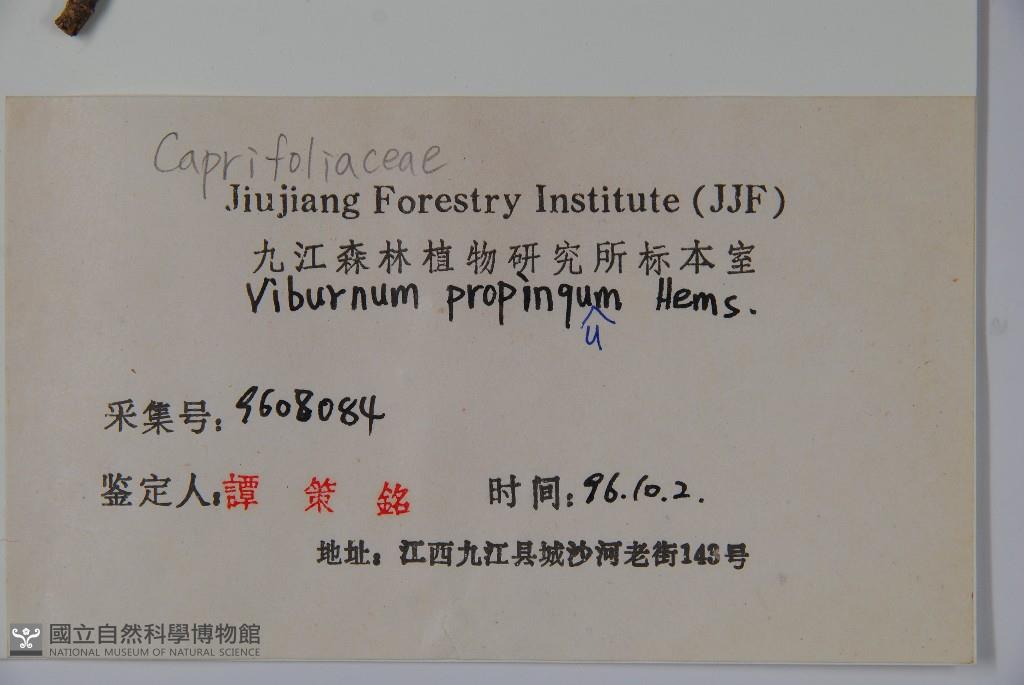 Caprifoliaceae
Jiujiang Forestry Institute (JJF)
九江森林植物研究所标本室
Viburnum propinqum Hems.
u
采集号: 9608084
鉴定人: 譚 策 銘 时间: 96.10.2.
地址: 江西九江县城沙河老街143号
國立自然科學博物館
NATIONAL MUSEUM OF NATURAL SCIENCE